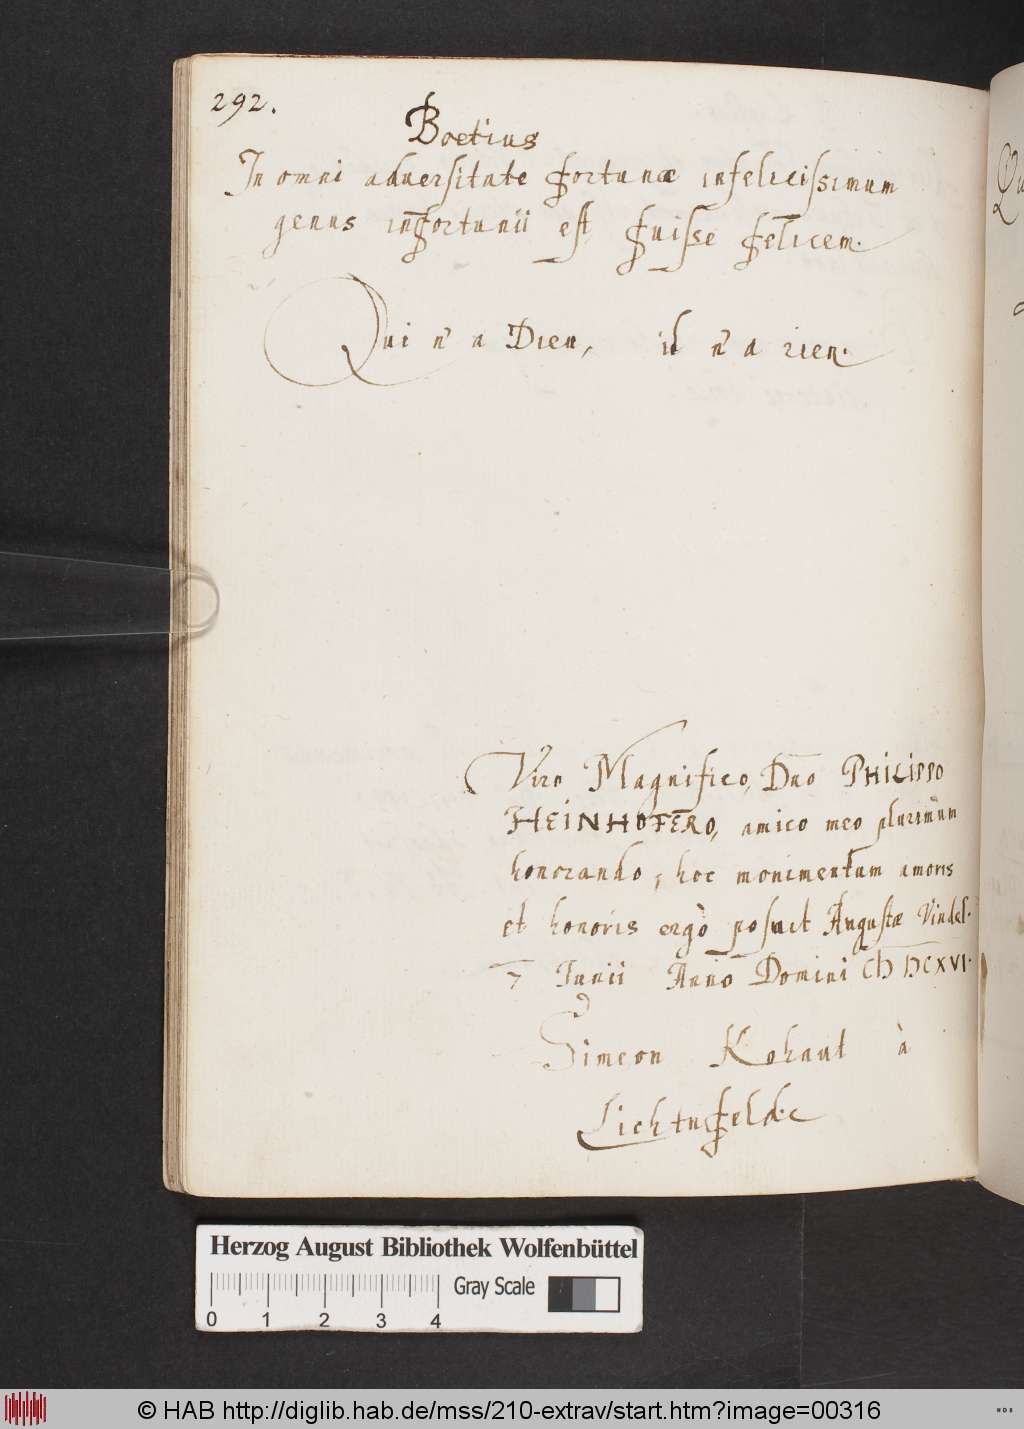 292.
Boetius
In omni aduersitate fortunæ infelicissimum
genus infortunii est fuisse felicem.
Qui n'a Dieu, il n'a rien.
Viro Magnifico, Dno PHILIPPO
HEINHOFERO, amico meo plurimum
honorando, hoc monimentum amoris
et honoris ergò posuit Augustæ Vindel.
7 Junii Anno Domini CIƆ IƆCXVI.
Simeon Kohaut à
Lichtnfeld
Herzog August Bibliothek Wolfenbüttel
Gray Scale
0 1 2 3 4
© HAB http://diglib.hab.de/mss/210-extrav/start.htm?image=00316